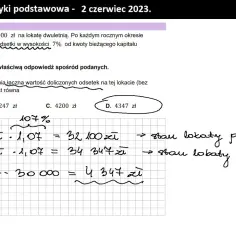 yki podstawowa - 2 czerwiec 2023.
00 zł na lokatę dwuletnią. Po każdym rocznym okresie
dsetki w wysokości 7% od kwoty bieżącego kapitału
właściwą odpowiedź spośród podanych.
łączna wartość doliczonych odsetek na tej lokacie (bez
równa
247 zł C. 4200 zł D. 4347 zł
107%
· 1,07 = 32 100 zł → stan lokaty p
· 1,07 = 34 347 zł → stan lokaty
- 30 000 = 4 347 zł